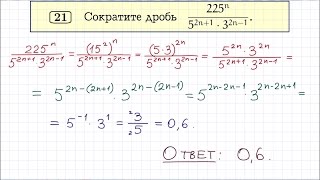 21 Сократите дробь 225ⁿ / (5²ⁿ⁺¹ · 3²ⁿ⁻¹).
225ⁿ / (5²ⁿ⁺¹ · 3²ⁿ⁻¹) = (15²)ⁿ / (5²ⁿ⁺¹ · 3²ⁿ⁻¹) = (5·3)²ⁿ / (5²ⁿ⁺¹ · 3²ⁿ⁻¹) = 5²ⁿ · 3²ⁿ / (5²ⁿ⁺¹ · 3²ⁿ⁻¹) =
= 5²ⁿ⁻⁽²ⁿ⁺¹⁾ · 3²ⁿ⁻⁽²ⁿ⁻¹⁾ = 5²ⁿ⁻²ⁿ⁻¹ · 3²ⁿ⁻²ⁿ⁺¹ =
= 5⁻¹ · 3¹ = ²3 / ²5 = 0,6.
Ответ: 0,6.